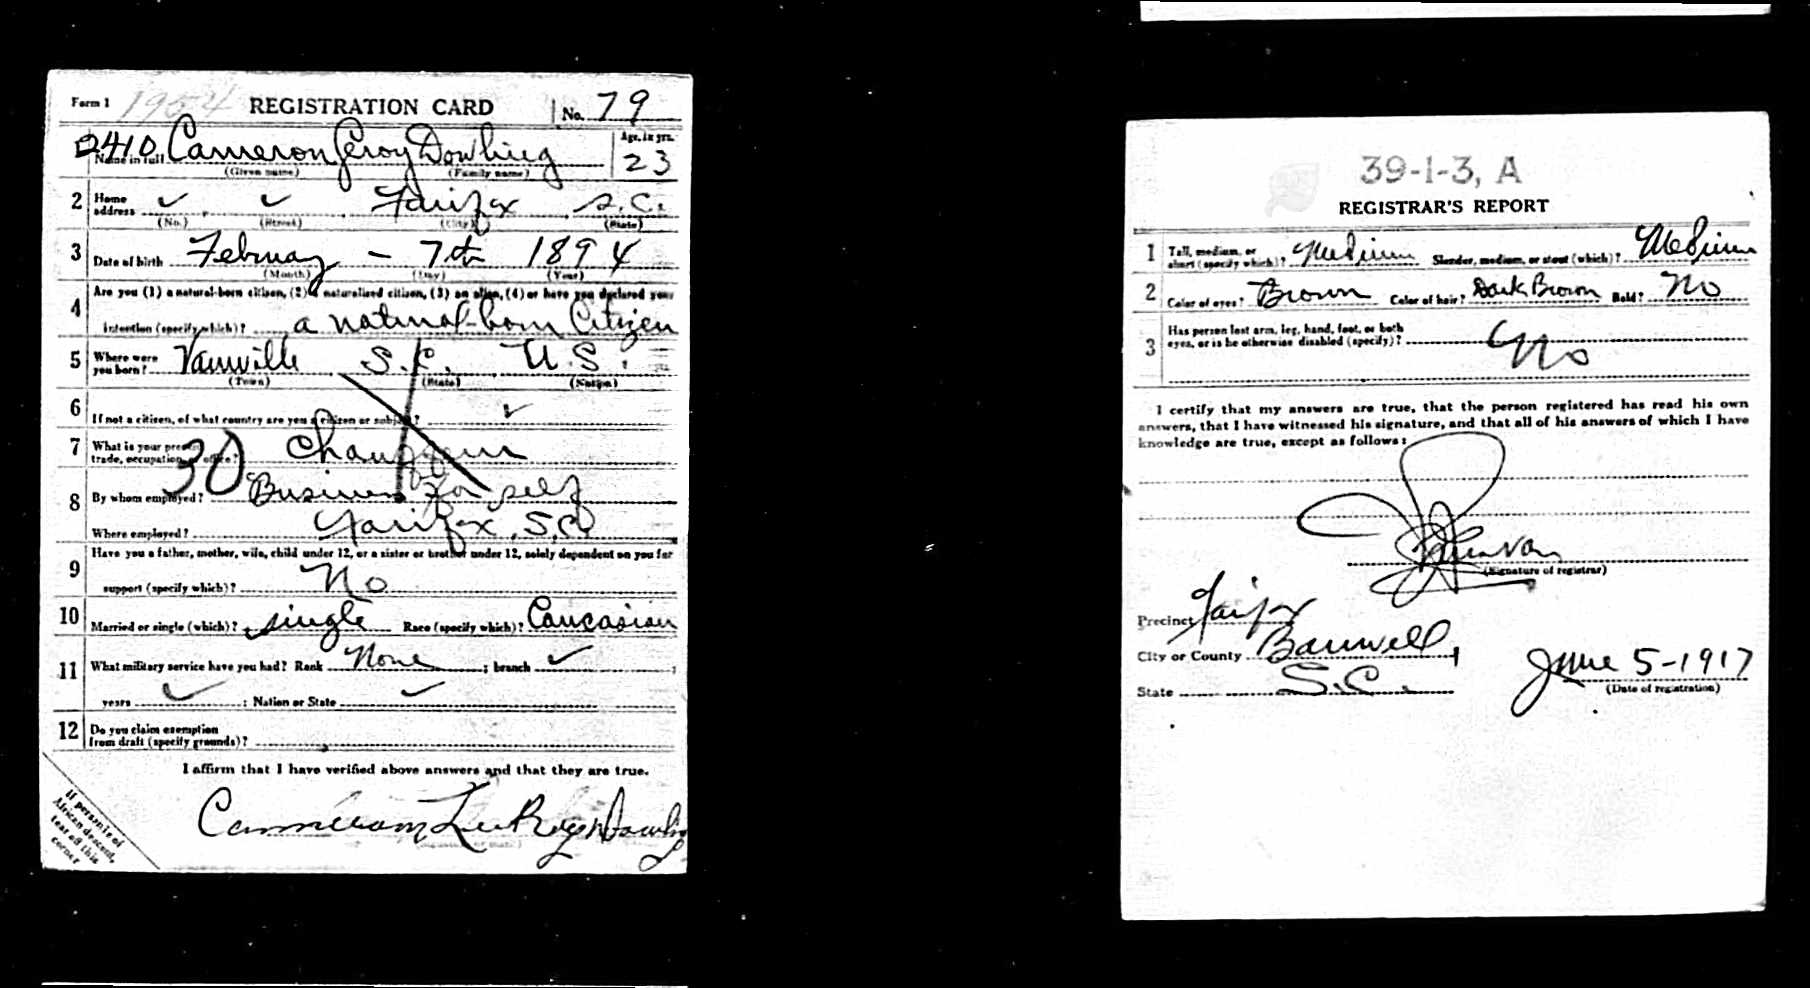 Form 1 1954 REGISTRATION CARD No. 79
2410 Cameron Leroy Dowling Age, in yrs.
Name in full 23
(Given name) (Family name)
2 Home address ✓ ✓ Fairfax S.C.
(No.) (Street) (City) (State)
3 Date of birth February - 7th 1894
(Month) (Day) (Year)
4 Are you (1) a natural-born citizen, (2) a naturalized citizen, (3) an alien, (4) or have you declared your
intention (specify which)? a natural-born Citizen
5 Where were you born? Varnville S.C. U.S.
(Town) (State) (Nation)
6 If not a citizen, of what country are you a citizen or subject? ✓
7 What is your present trade, occupation, or office? Chauffeur
30
8 By whom employed? Business for self
Where employed? Fairfax, S.C.
9 Have you a father, mother, wife, child under 12, or a sister or brother under 12, solely dependent on you for
support (specify which)? No
10 Married or single (which)? single Race (specify which)? Caucasian
11 What military service have you had? Rank None ; branch ✓ ;
years ✓ ; Nation or State ✓
12 Do you claim exemption
from draft (specify grounds)?
I affirm that I have verified above answers and that they are true.
If person is of
African descent,
tear off this
corner
39-1-3, A
REGISTRAR'S REPORT
1 Tall, medium, or short (specify which)? Medium Slender, medium, or stout (which)? Medium
2 Color of eyes? Brown Color of hair? Dark Brown Bald? No
3 Has person lost arm, leg, hand, foot, or both
eyes, or is he otherwise disabled (specify)? No
I certify that my answers are true, that the person registered has read his own
answers, that I have witnessed his signature, and that all of his answers of which I have
knowledge are true, except as follows:
(Signature of registrar)
Precinct Fairfax
City or County Barnwell
State S.C.
June 5-1917
(Date of registration)